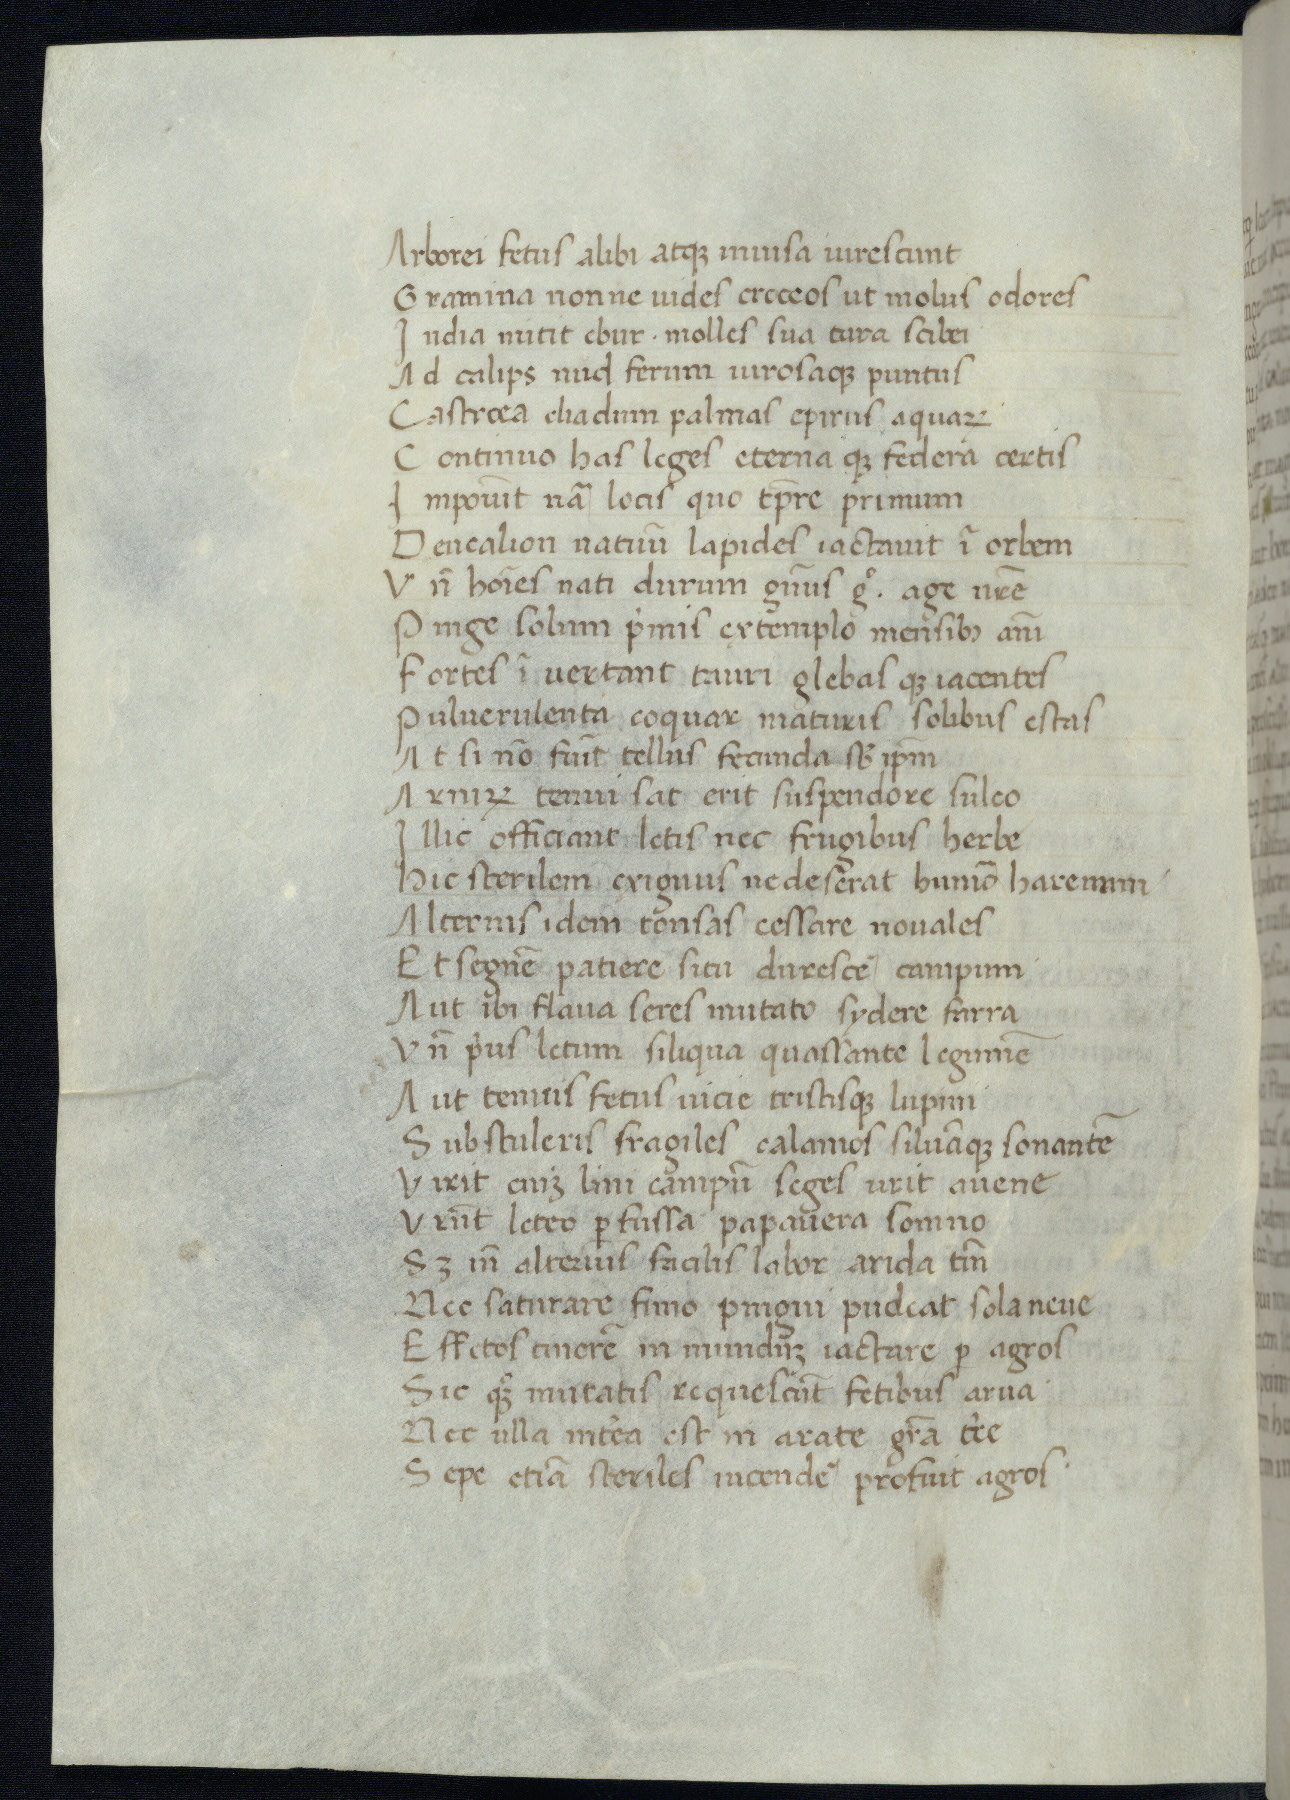 Arborei fetus alibi atqꝫ iniusa uirescunt
Gramina nonne uides croceos ut molus odores
India mitit ebur · molles sua tura sabei
Ad calips nud ferum uirosaqꝫ puntus
Castrcea eliadum palmas epirus aquaꝝ
Continuo has leges eterna qꝫ federa certis
Imposuit nā locis quo tp̄re primum
Deucalion natuū lapides iactauit ī orbem
Vn̄ hoīes nati durum gn̄us gͦ. age nr̄e
Pinge solum pⁱmis extemplo mensibꝫ ani
Fortes ī uertant tauri glebas qꝫ iacentes
Puluerulenta coquar maturis solibus estas
At si nō fūit tellus fecunda sb̄ ip̄m
Arturꝝ tenui sat erit suspendore sulco
Illic officiant letis nec frugibus herbe
Hic sterilem exiguus ne deserat humō harenam
Alternis idem tonsas cessare nouales
Et segnē patiere situ durescē campum
Aut ibi flaua seres mutato sydere farra
Vn̄ pⁱus letum siliqua quassante legumē
Aut tenuis fetus uicie tristisqꝫ lupini
Substuleris fragiles calamos siluāqꝫ sonantē
Vrit eniꝫ lini campū seges urit auene
Vrūt leteo ꝑfussa papauera somno
Sꝫ tn̄ alternis facilis labor arida tm̄
Nec saturare fimo pingui pudeat sola neue
Effetos cinerē in mundūꝫ iactare ꝑ agros
Sic qꝫ mutatis requescūt fetibus arua
Nec ulla intͤea est in arate grā tͤre
Sepe etiā steriles incendē profuit agros